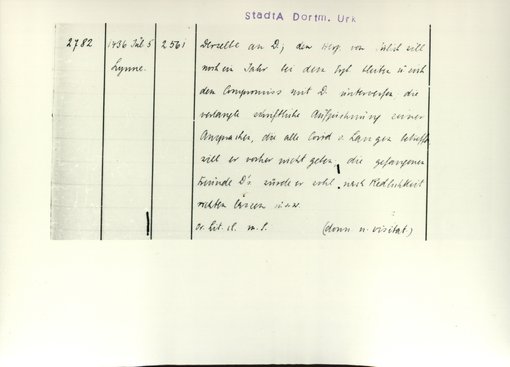 StadtA Dortm. Urk
2782 1436 Jul 5 2561 Derselbe an D; den Herzog von Jülich will
Lynne. noch ein Jahr bei dem bleiben u. sich
dem Compromiss mit D. unterwerfen, die
verlangte schriftliche Aufzeichnung seiner
Ansprachen, die alle Cord v. Langen betreffen
will er vorher nicht geben, die gefangenen
Freunde D's würde er wohl nach Redlichkeit
richten lassen
Or. lit. cl. m. S. (dom. n. visitat.)